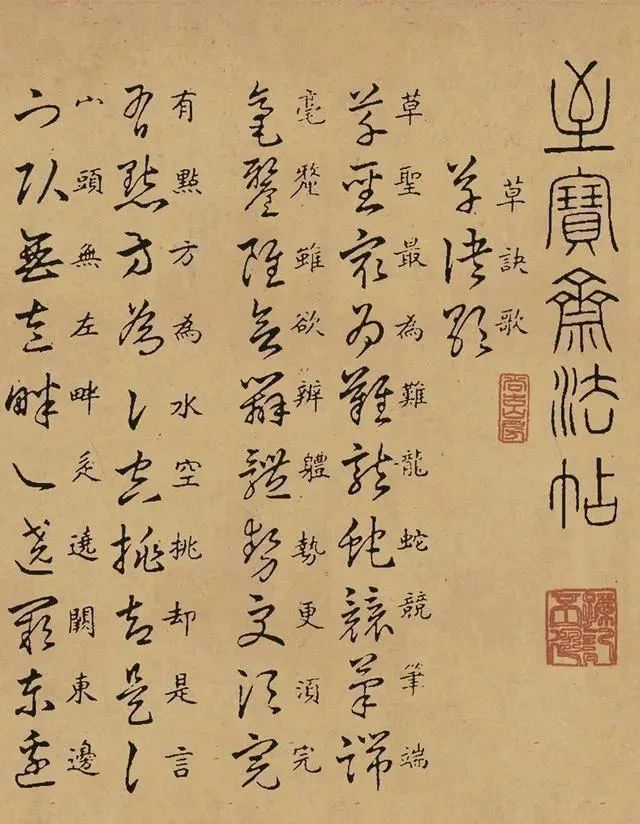 至寶齋法帖
草訣歌
草訣歌
草聖最為難龍蛇競筆端
草聖最為難龍蛇競筆端
毫釐雖欲辨體勢更須完
毫釐雖欲辨體勢更須完
有點方為水空挑却是言
有點方為水空挑却是言
山頭無左畔辵遶闕東邊
山頭無左畔辵遶闕東邊